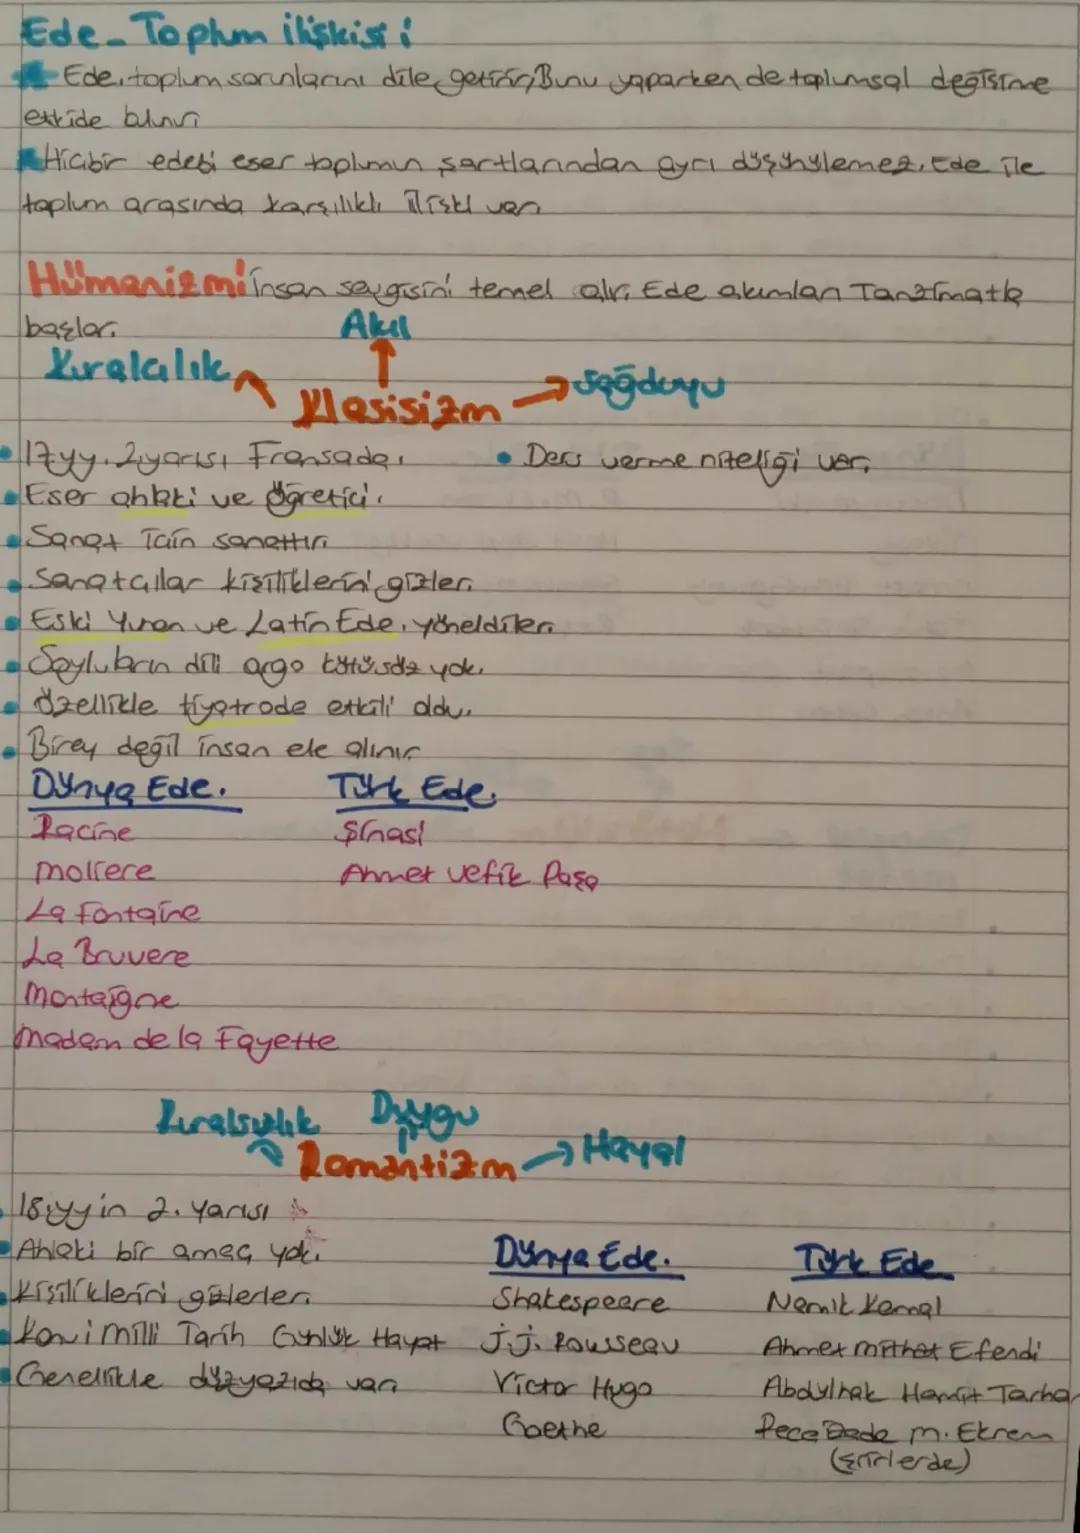 Ede-Toplum ilişkisi:
Ede. toplum sorunlarını dile getirir, Bunu yaparken de toplumsal değişime
etkide bulunur
Hiçbir edebi eser toplumun şartlarından ayrı düşünülemez. Ede ile
toplum arasında karşılıklı ilişki var.
Hümanizm: insan sevgisini temel alır. Ede akımları Tanzimatla
başlar.
Akıl
Kuralcılık
Klasisizm → Sağduyu
• 17.yy. 2.yarısı Fransada. • Ders verme niteliği var.
• Eser ahlaki ve öğretici.
• Sanat için sanattır.
• Sanatçılar kişiliklerini gizler.
• Eski Yunan ve Latin Ede. yöneldiler.
• Soyluların dili argo kötü söz yok.
• Özellikle tiyatroda etkili oldu.
• Birey değil insan ele alınır
Dünya Ede. Türk Ede.
Racine Şinasi
moliere Ahmet Vefik Paşa
La Fontaine
La Bruvere
Montaigne
Madam de la Fayette
Kuralsızlık Duygu
Romantizm → Hayal
18.yy in 2. Yarısı
• Ahlaki bir amaç yok. Dünya Ede. Türk Ede
• Kişiliklerini gizlerler. Shakespeare Namık Kemal
• Konu: Milli Tarih Günlük Hayat J.J. Rousseau Ahmet Mithat Efendi
• Genellikle düzyazıda var. Victor Hugo Abdülhak Hamit Tarhan
Goethe Recaizade M. Ekrem
(şiirlerde)